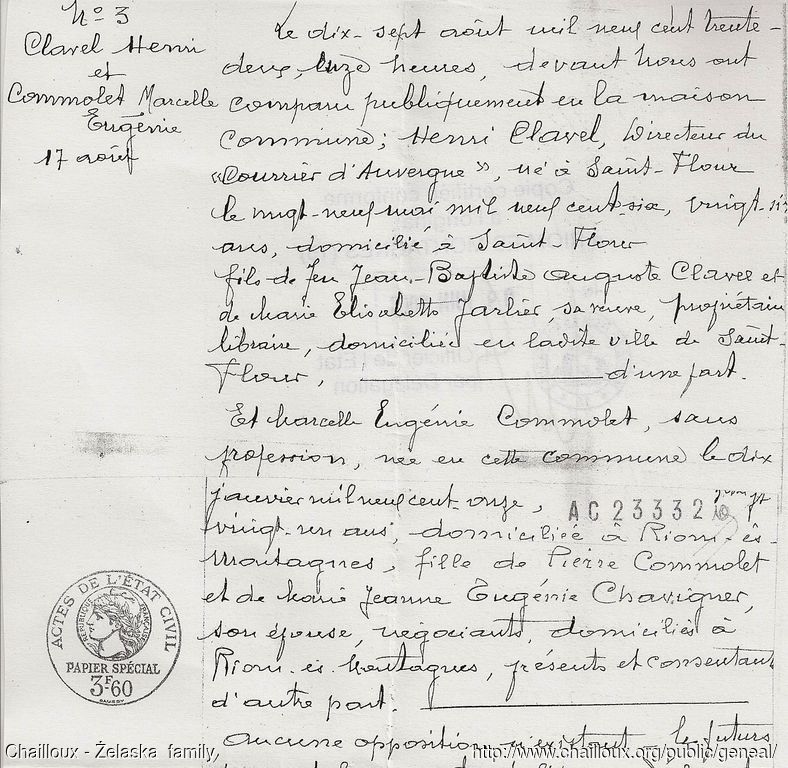 No 3
Clavel Henri
et
Commolet Marcelle
Eugénie
17 août
Le dix-sept août mil neuf cent trente-
deux, onze heures, devant nous ont
comparu publiquement en la maison
commune; Henri Clavel, Directeur du
"Courrier d'Auvergne", né à Saint-Flour
le vingt-neuf mai mil neuf cent-six, vingt-six
ans, domicilié à Saint-Flour
fils de feu Jean-Baptiste Auguste Clavel et
de Marie Elisabeth Jarlier sa veuve, propriétaire
libraire, domiciliée en ladite ville de Saint-
Flour, d'une part.
Et Marcelle Eugénie Commolet, sans
profession, née en cette commune le dix
janvier mil neuf cent-onze,
AC 23332
vingt-un ans, domiciliée à Riom-ès-
Montagnes, fille de Pierre Commolet
et de Marie Jeanne Eugénie Chavigner,
son épouse, négociants, domiciliés à
Riom-ès-Montagnes, présents et consentant
d'autre part.
Aucune opposition n'existant, les futurs
ACTES DE L'ÉTAT CIVIL
RÉPUBLIQUE FRANÇAISE
PAPIER SPÉCIAL
3F-60
Chailloux - Żelaska family, http://www.chailloux.org/public/geneal/